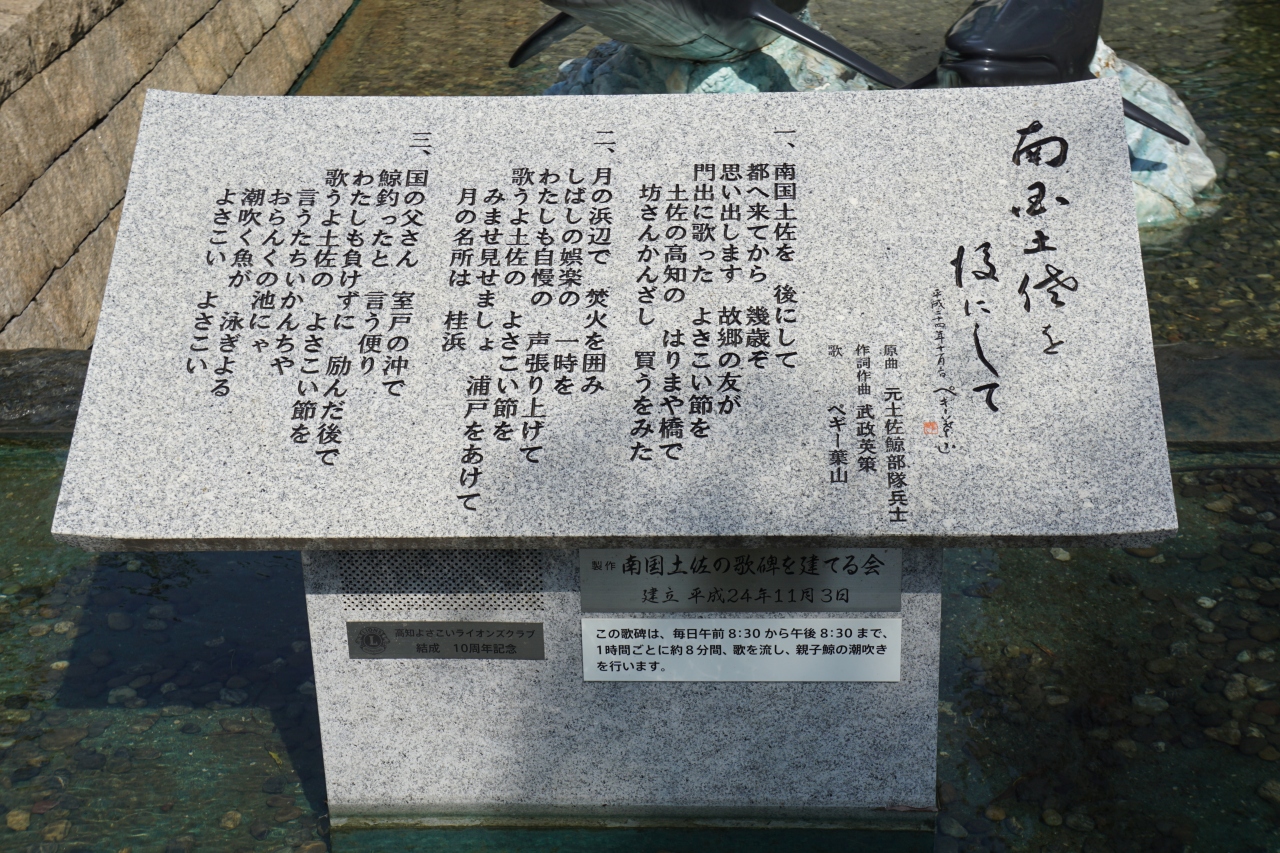 南国土佐を
後にして
平成二十四年十一月吉日 ペギー葉山
原曲 元土佐鯨部隊兵士
作詞作曲 武政英策
歌 ペギー葉山
一、南国土佐を 後にして
都へ来てから 幾歳ぞ
思い出します 故郷の友が
門出に歌った よさこい節を
土佐の高知の はりまや橋で
坊さんかんざし 買うをみた
二、月の浜辺で 焚火を囲み
しばしの娯楽の 一時を
わたしも自慢の 声張り上げて
歌うよ土佐の よさこい節を
みませ見せましょ 浦戸をあけて
月の名所は 桂浜
三、国の父さん 室戸の沖で
鯨釣ったと 言う便り
わたしも負けずに 励んだ後で
歌うよ土佐の よさこい節を
言うたちいかんちや
おらんくの池にゃ
潮吹く魚が 泳ぎよる
よさこい よさこい
製作 南国土佐の歌碑を建てる会
建立 平成24年11月3日
高知よさこいライオンズクラブ
結成 10周年記念
この歌碑は、毎日午前8:30から午後8:30まで、
1時間ごとに約8分間、歌を流し、親子鯨の潮吹き
を行います。